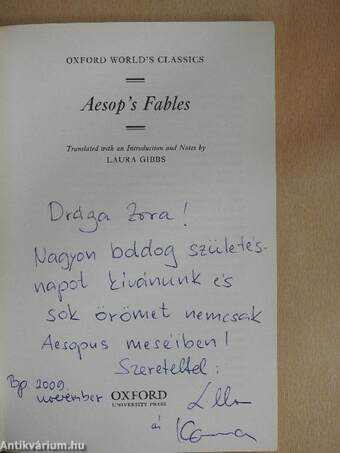 OXFORD WORLD'S CLASSICS
Aesop's Fables
Translated with an Introduction and Notes by
LAURA GIBBS
Drága Zora!
Nagyon boldog születés-
napot kívánunk és
sok örömet nemcsak
Aesopus meséiben!
Szeretettel:
Bp 2009
november
OXFORD
UNIVERSITY PRESS
Antikvárium.hu